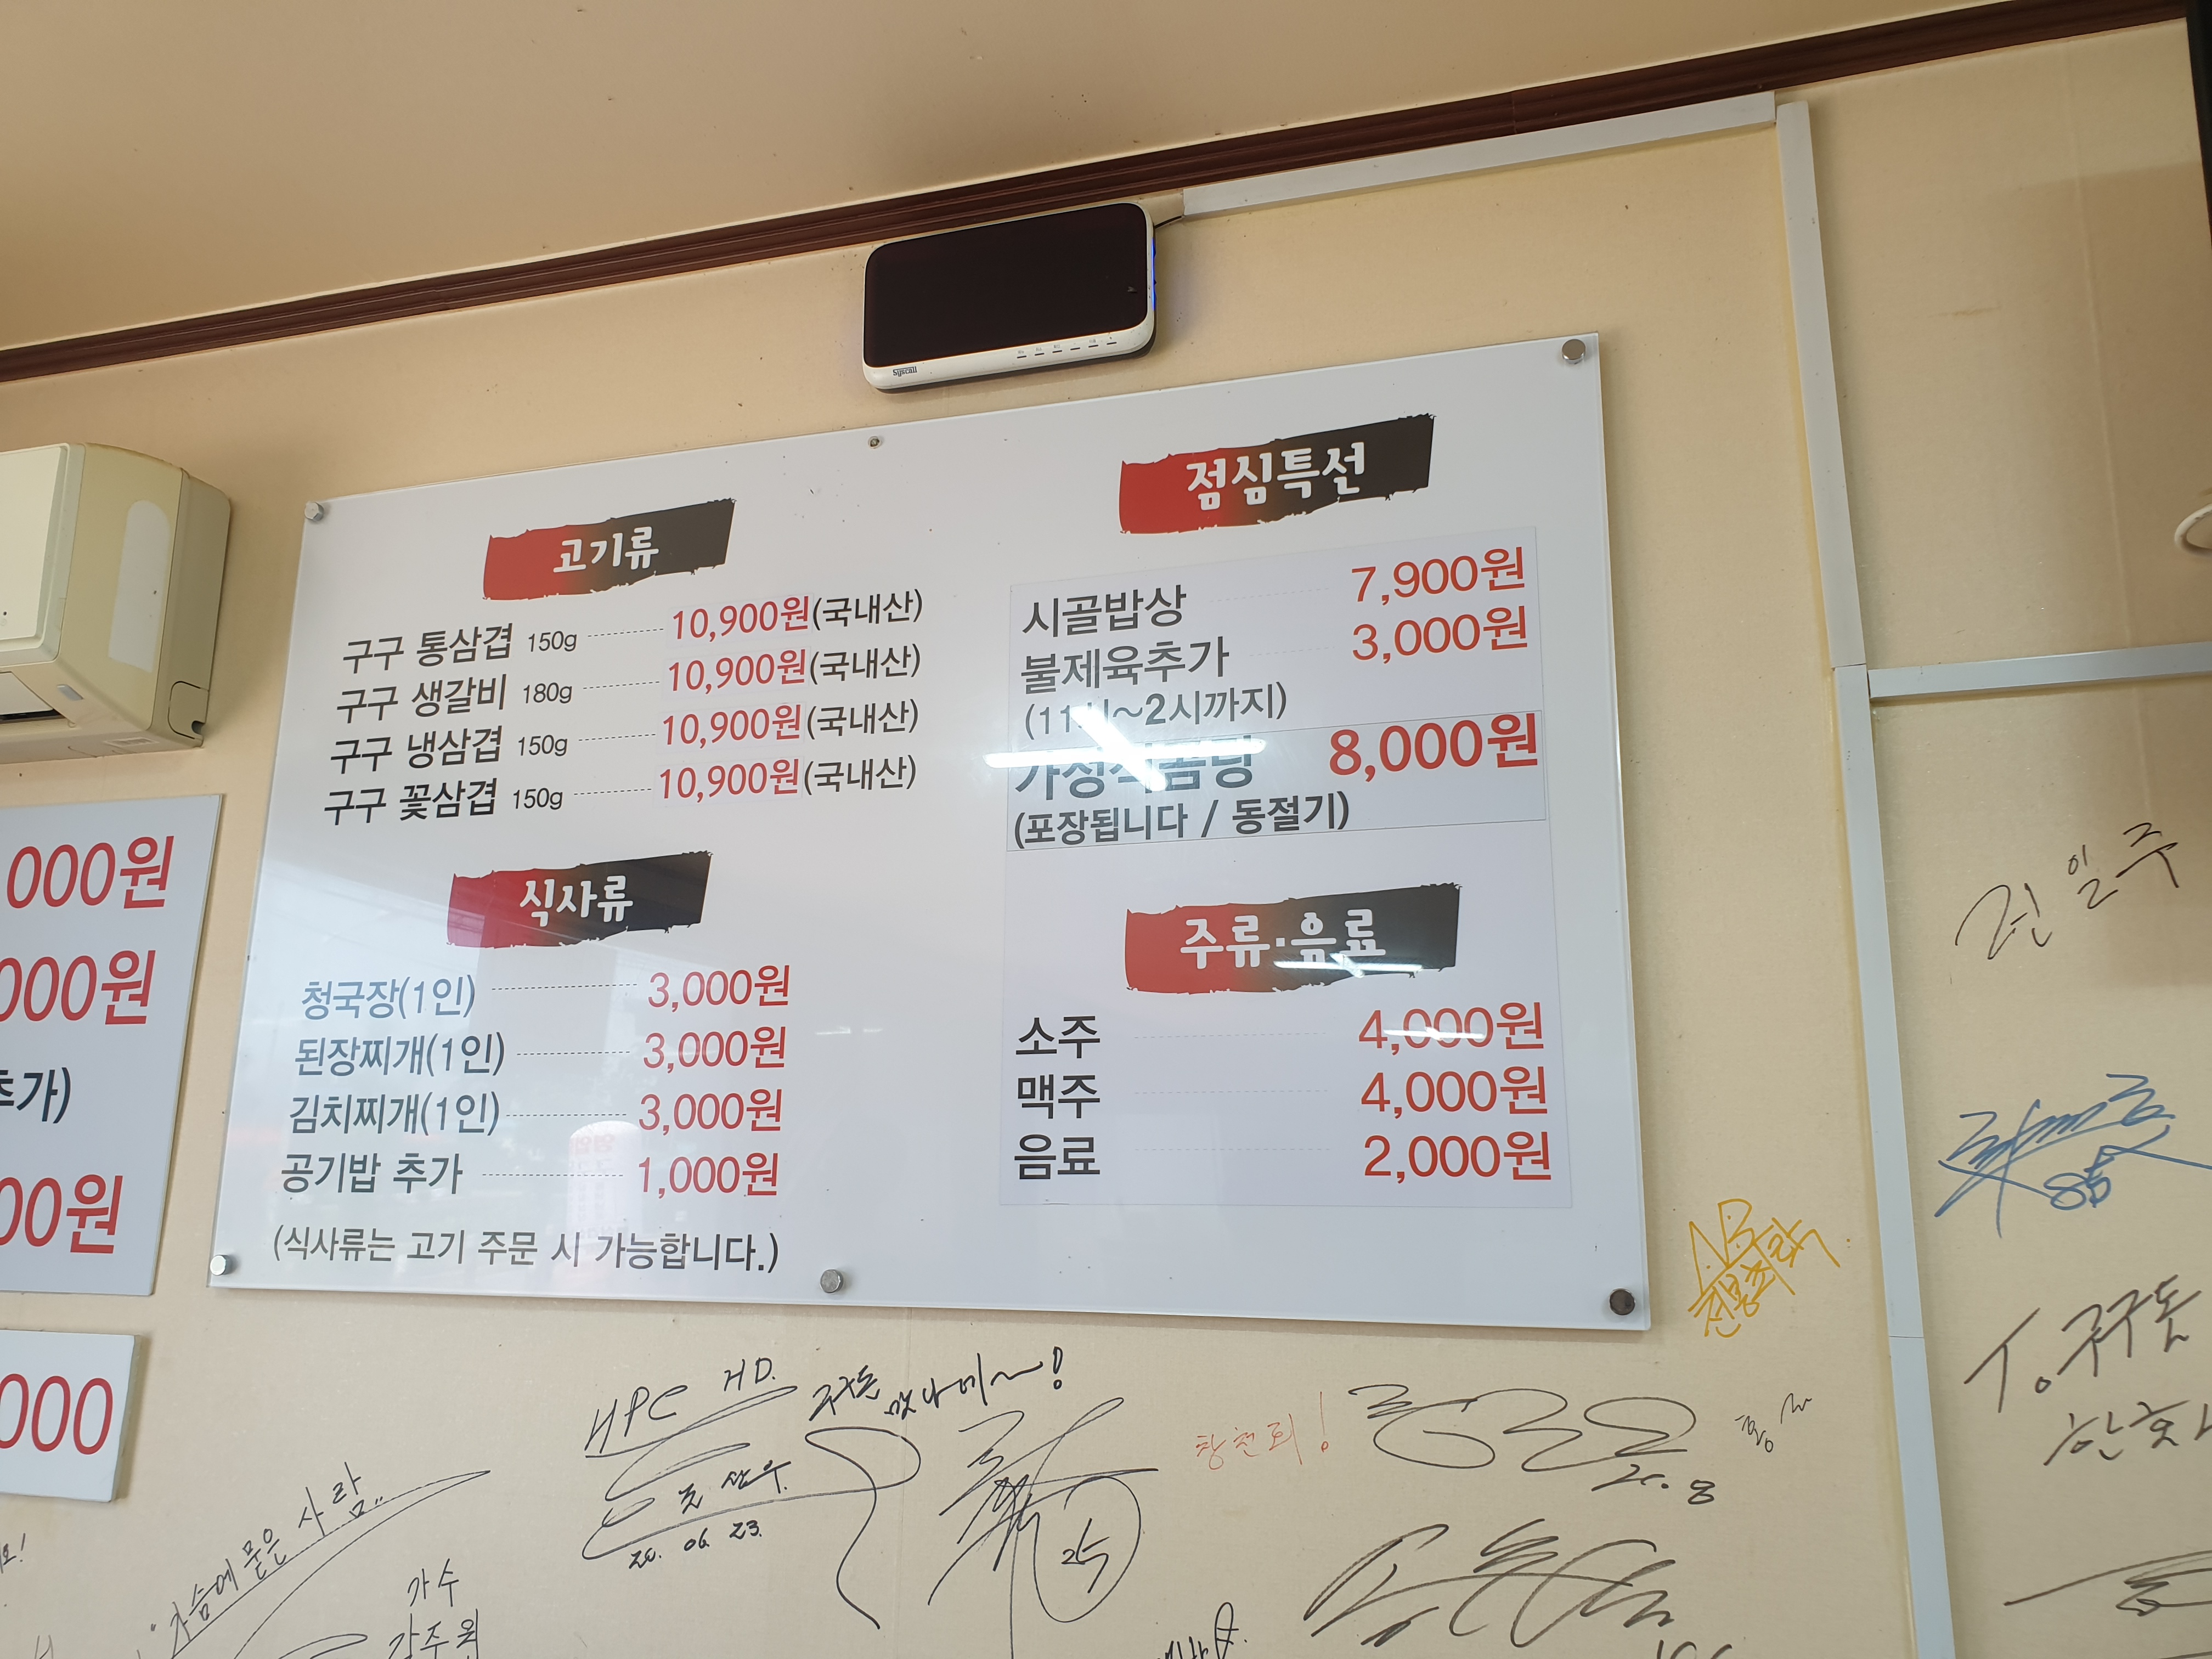 Syscall
고기류
구구 통삼겹 150g 10,900원(국내산)
구구 생갈비 180g 10,900원(국내산)
구구 냉삼겹 150g 10,900원(국내산)
구구 꽃삼겹 150g 10,900원(국내산)
식사류
청국장(1인) 3,000원
된장찌개(1인) 3,000원
김치찌개(1인) 3,000원
공기밥 추가 1,000원
(식사류는 고기 주문 시 가능합니다.)
점심특선
시골밥상 7,900원
불제육추가 3,000원
(11시~2시까지)
가정식곰탕 8,000원
(포장됩니다 / 동절기)
주류·음료
소주 4,000원
맥주 4,000원
음료 2,000원
000원
000원
추가)
00원
000
HPC HD.
구구돈 맛나에~!
20. 06. 23.
가슴에 묻은 사람..
가수
강주원
20.8
구구돈